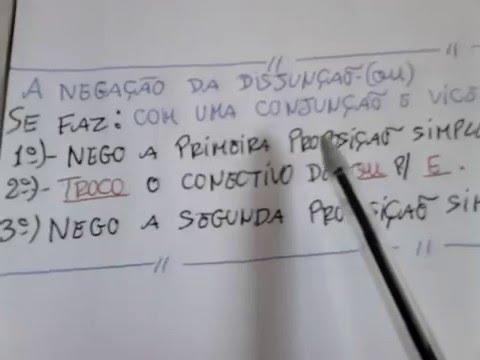 A NEGAÇÃO DA DISJUNÇÃO-(OU)
SE FAZ: COM UMA CONJUNÇÃO E VICE
1º)- NEGO A PRIMEIRA PROPOSIÇÃO SIMPL
2º)- TROCO O CONECTIVO DO OU P/ E.
3º) NEGO A SEGUNDA PROPOSIÇÃO SIM